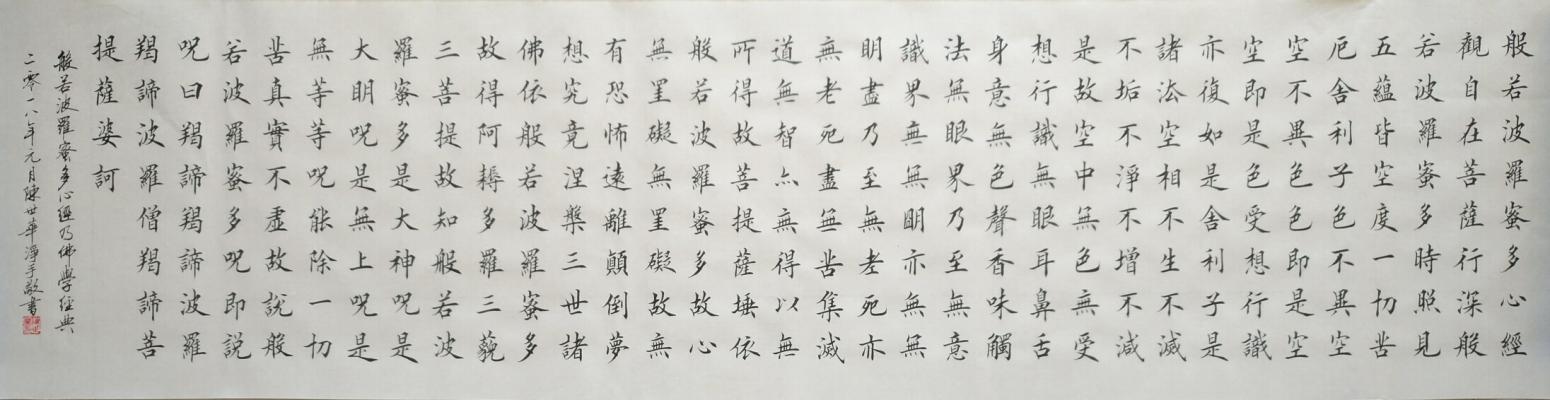 般若波羅蜜多心經
觀自在菩薩行深般
若波羅蜜多時照見
五蘊皆空度一切苦
厄舍利子色不異空
空不異色色即是空
空即是色受想行識
亦復如是舍利子是
諸法空相不生不滅
不垢不淨不增不減
是故空中無色無受
想行識無眼耳鼻舌
身意無色聲香味觸
法無眼界乃至無意
識界無無明亦無無
明盡乃至無老死亦
無老死盡無苦集滅
道無智亦無得以無
所得故菩提薩埵依
般若波羅蜜多故心
無罣礙無罣礙故無
有恐怖遠離顛倒夢
想究竟涅槃三世諸
佛依般若波羅蜜多
故得阿耨多羅三藐
三菩提故知般若波
羅蜜多是大神呪是
大明呪是無上呪是
無等等呪能除一切
苦真實不虛故說般
若波羅蜜多呪即説
呪曰羯諦羯諦波羅
羯諦波羅僧羯諦菩
提薩婆訶
般若波羅蜜多心經乃佛學經典
二零一八年元月陳世華淨手敬書